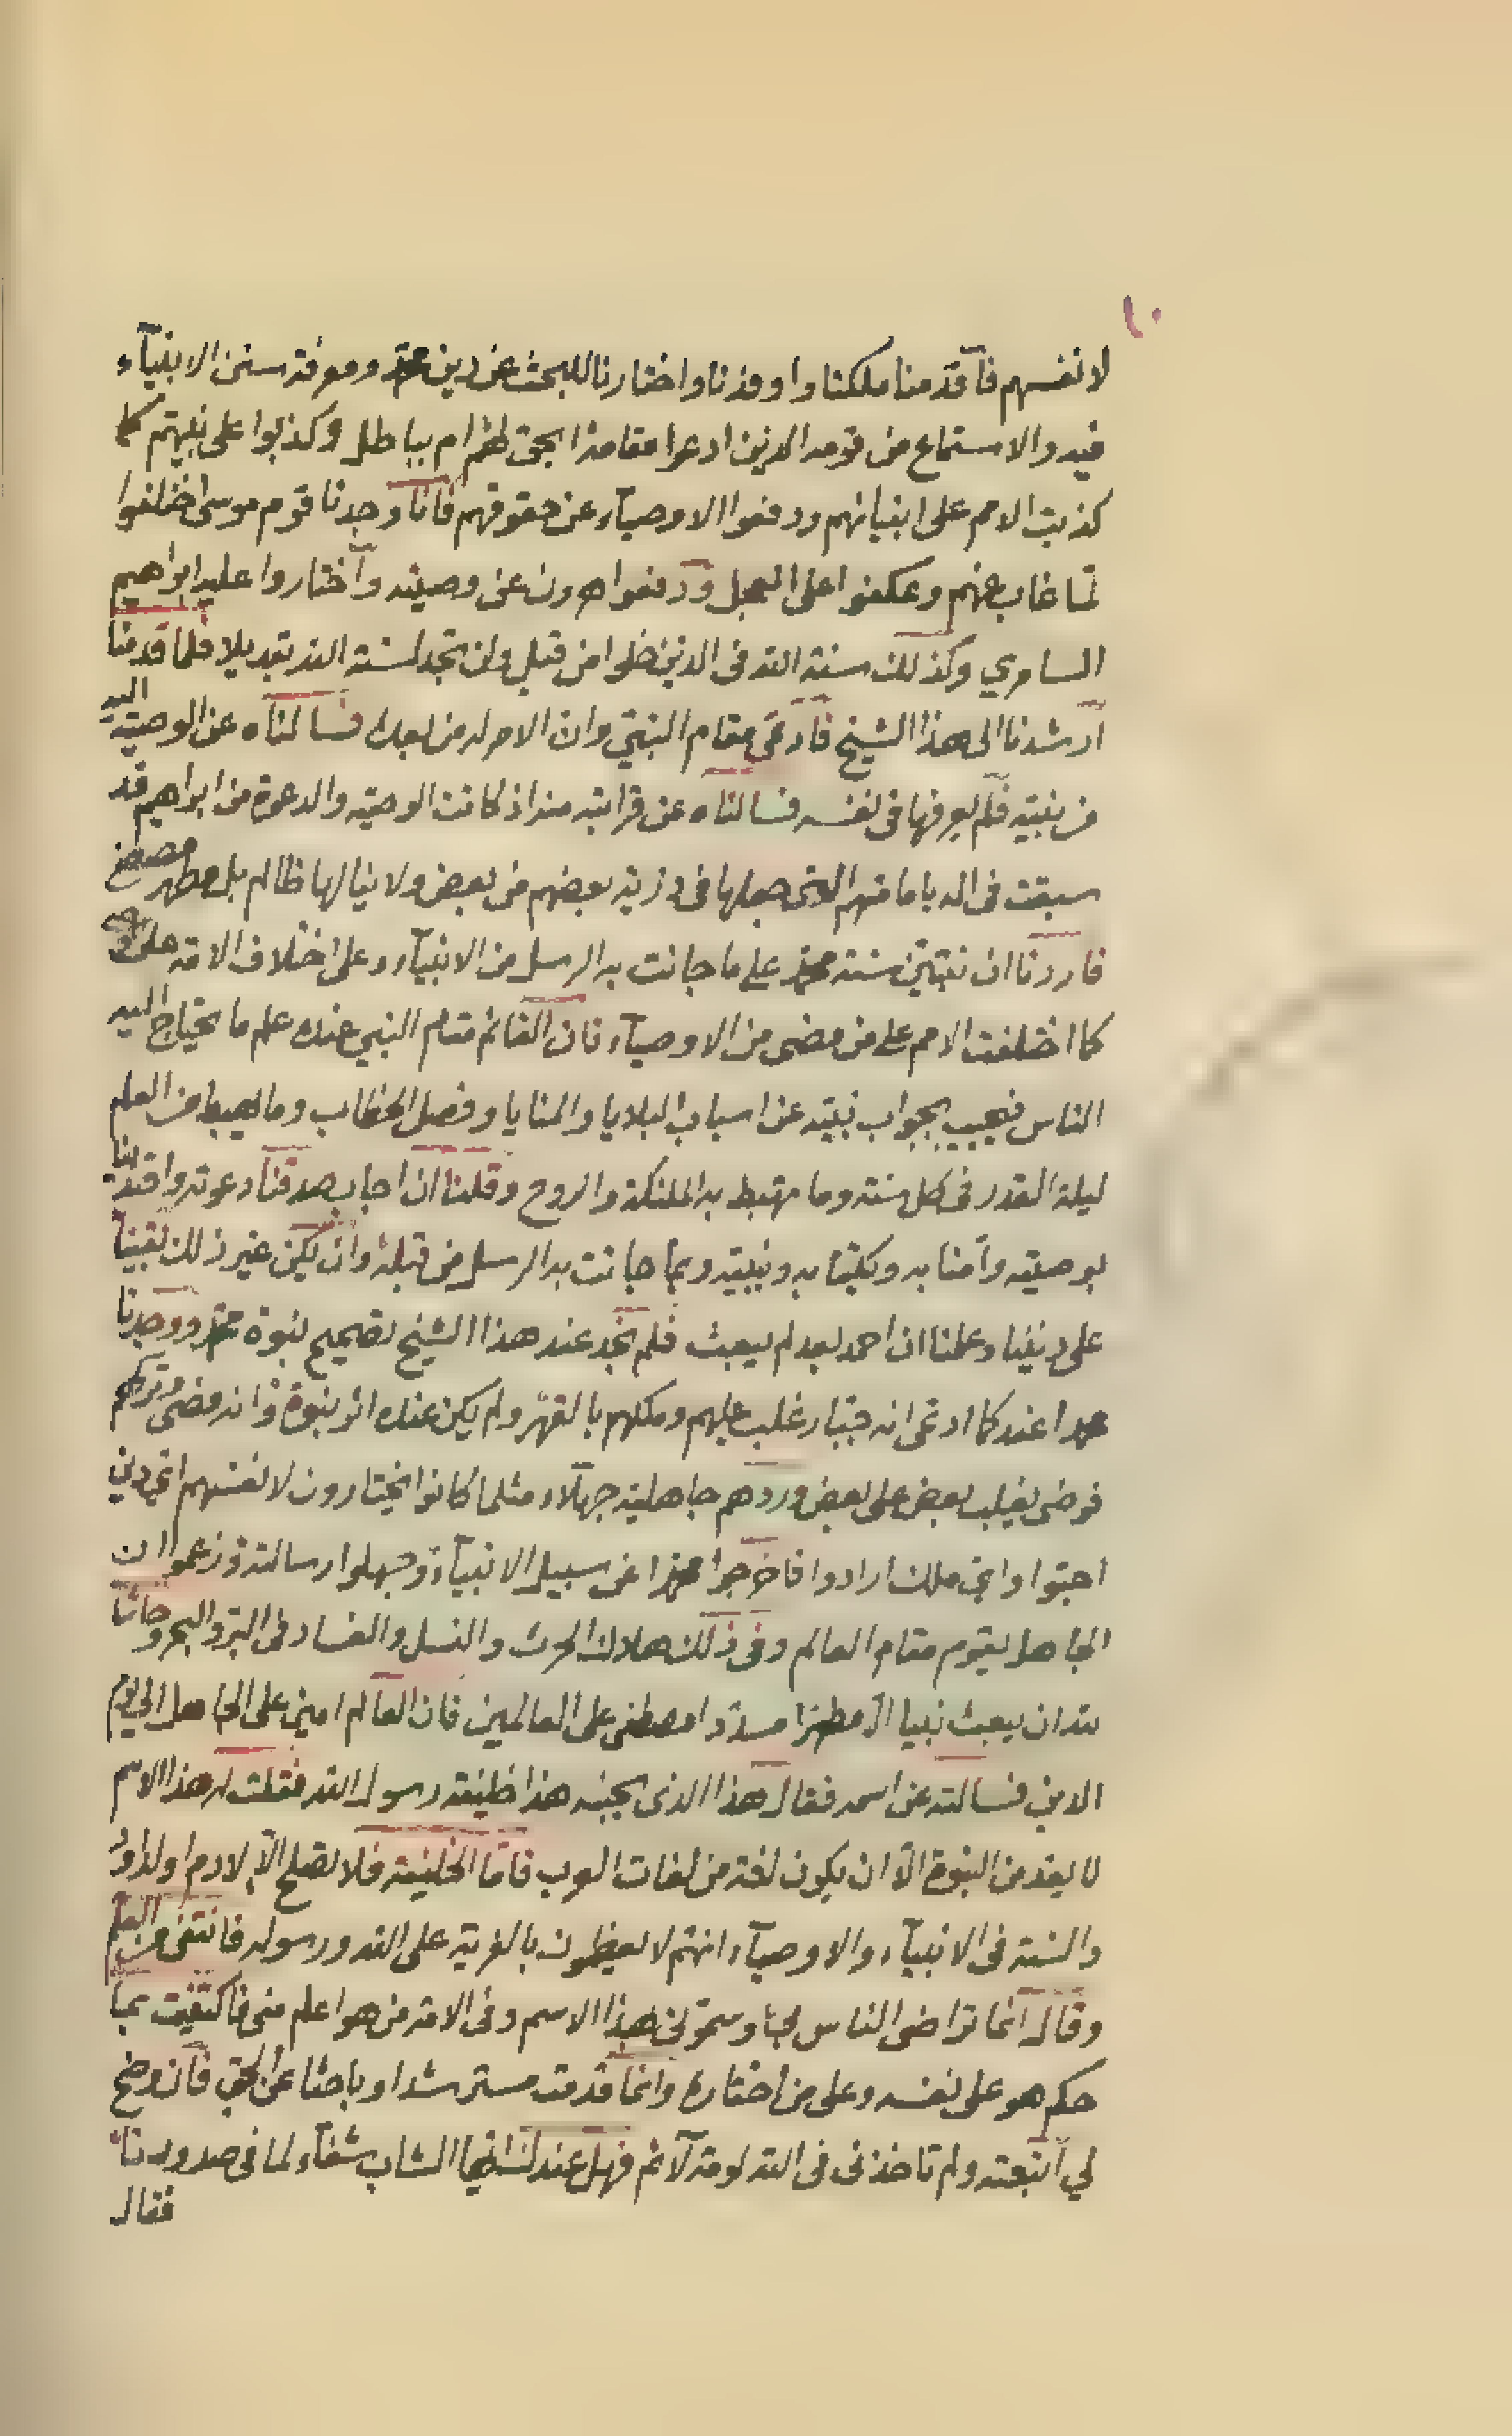 ١٠
لانفسهم فاقدمنا ملكنا واوفدنا واختارنا للبحث عن دين محمد ومعرفة سنن الانبيآء
فيه والاستماع من قومه الذين ادعوا مقامه ابحق لهم ام بباطل وكذبوا على نبيهم كما
كذبت الامم على انبيائهم ودفعوا الاوصيآء عن حقوقهم فانا وجدنا قوم موسى اختلفوا
لما غاب عنهم وعكفوا على العجل ودفعوا هرون عن وصيته واختاروا عليه ابراهيم
السامري وكذلك سنة الله فى الذين خلوا من قبل ولن تجد لسنة الله تبديلا فلما قدمنا
ارشدنا الى هذا الشيخ فادعى مقام النبي وان الامر له من بعده فسالناه عن الوصية اليه
من نبيه فلم يعرفها فى نفسه فسالناه عن قرابته منه اذ كانت الوصية والدعوة من ابراهيم قد
سبقت فى الدي امامتهم التى جعلها فى ذرية بعضهم من بعض ولا ينالها ظالم بل مطهر مصطفى
فاردنا ان نتبين سنة محمد على ما جائت به الرسل من الانبيآء وعلى اختلاف الامة على
كما اختلفت الامم على من مضى من الاوصيآء فان القائم مقام النبي عنده علم ما يحتاج اليه
الناس فيجيب بجواب نبيه عن اسباب البلايا والمنايا وفصل الخطاب وما يهبط من العلم
ليلة القدر فى كل سنة وما يهبط به الملئكة والروح وقلنا ان اجاب صدقنا دعوته واقتدينا
بوصيته وآمنا به وبكتابه ونبيه وبما جائت به الرسل من قبله وان يكن غير ذلك بقينا
على ديننا وعلمنا ان احمد بعد لم يبعث فلم نجد عند هذا الشيخ تصحيح لنبوة محمد ووجدنا
محمدا عنده كما ادعى انه جبار غلب عليهم وملكهم بالقهر ولم يكن عنده اثر بنبوة وانه مضى وتركهم
فوضى يغلب بعض على بعض وردهم جاهلية جهلاء مثلما كانوا يختارون لانفسهم اي دين
احبوا واي ملك ارادوا فاخرجوا محمدا عن سبيل الانبيآء وجهلوا رسالته وزعموا ان
الجاهل يقوم مقام العالم وفى ذلك هلاك الحرث والنسل والفساد فى البر والبحر وحاشا
لله ان يبعث نبيا الا مطهرا مسددا مصطفى على العالمين فان العالم امين على الجاهل الى يوم
الدين فسالته عن اسمه فقال هذا الذى بجنبه هذا خليفة رسول الله فقلت له هذا الاسم
لا يعد من النبوة الا ان يكون لغة من لغات العرب فاما الخليفة فلا يصلح الا لادم او لداود
والسنة فى الانبيآء والاوصيآء انهم لا يعظمون بالفرية على الله ورسوله فانتفى من العلم
وقال انما تراضى الناس بي وسموني هذا الاسم وفى الامة من هو اعلم منى فاكتفيت بما
حكم هو على نفسه وعلى من اختاره وانما قدمت مسترشدا وباحثا عن الحق فان وضح
لي اتبعته ولم تاخذنى فى الله لومة لائم فهل عندك ايها الشاب شفآء لما فى صدورنا
فقال